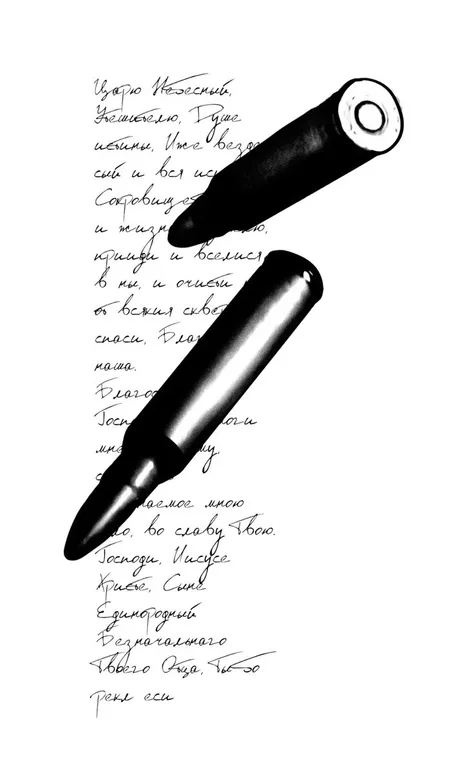 Царю Небесный,
Утешителю, Душе
истины, Иже везде
сый и вся
Сокровище
и жизн
прииди и вселися
в ны, и очисти
от всякия сквер
спаси, Бла
наша.
Благос
Госп оги
мн му,
с
аемое мною
ло, во славу Твою.
Господи, Иисусе
Христе, Сыне
Единородный
Безначальнаго
Твоего Отца, Ты бо
рекл еси